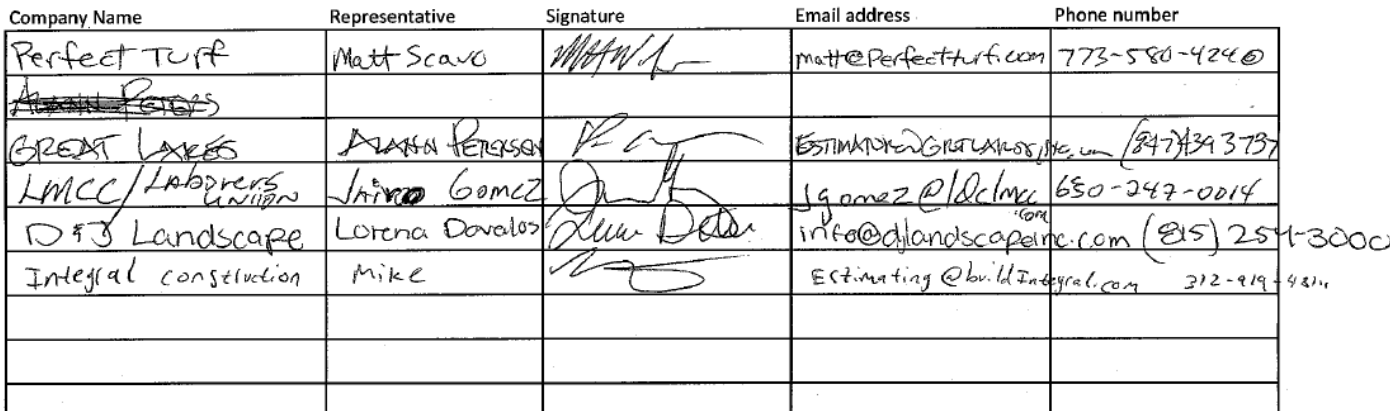 Company Name Representative Signature Email address Phone number
Perfect Turf Matt Scavo matt@Perfectturf.com 773-580-4240
GREAT LAKES ALANN PETERSEN (847)439 3737
LMCC/Laborers UNION Jairo Gomez Jgomez@ldclmcc.com 630-247-0014
D&J Landscape Lorena Davalos info@djlandscapeinc.com (815) 254-3000
Integral construction Mike Estimating@buildIntegral.com 312-919-